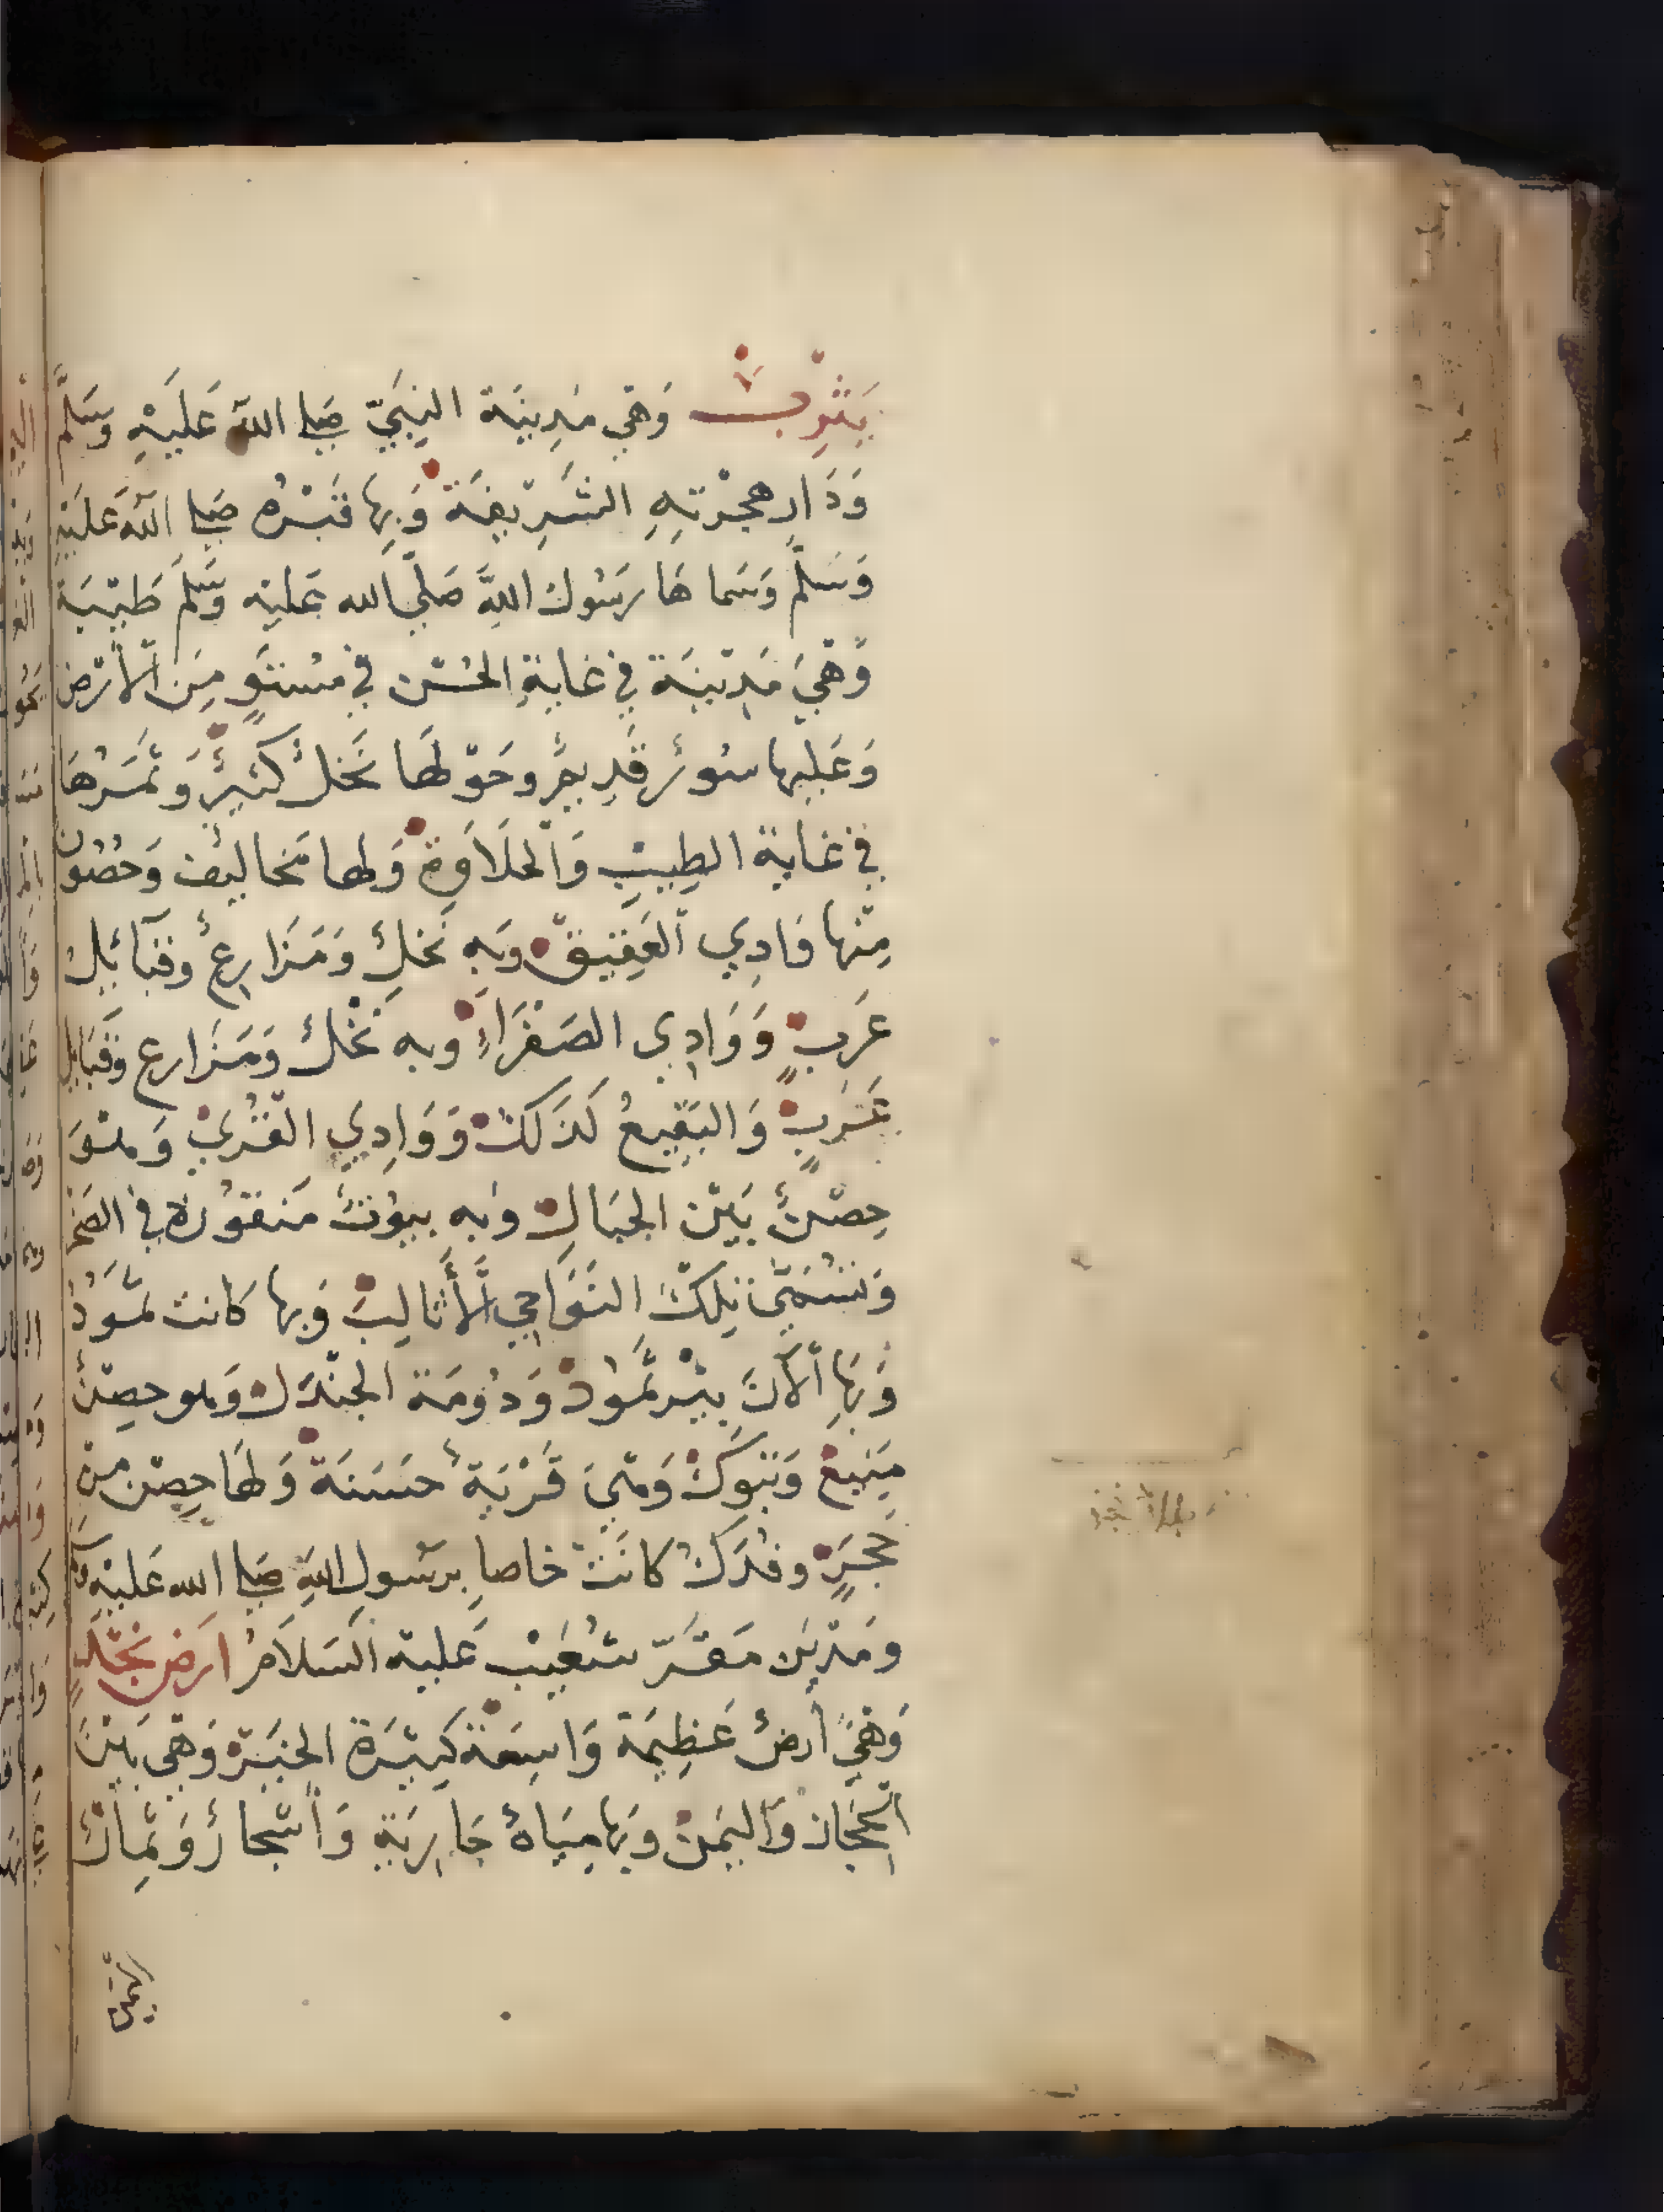 يَثْرِبْ وَهِي مَدِينَة النَبِيّ صَلى اللهُ عَلَيْهِ وَسَلَّم
وَدَارِ هِجْرَتِهِ الشَرِيفَة وَبِهَا قَبْرُه صَلى اللهُ عَلَيْهِ
وَسَلَّم وَسَماهَا رَسُولُ اللهِ صَلّي الله عَليْه وَسَلَّم طَيْبَة
وَهْيَ مَدِيْنَة فِي غَايةِ الحُسْن فِي مُسْتَوٍ مِنَ الأَرْض
وَعَلَيها سُورٌ قَدِيمٌ وحَوْلَهَا نَخْلٌ كَثِيرٌ وَتَمْرُهَا
فِي غَايَة الطِيبِ وَالْحَلَاوَة وَلها مَخاليفٌ وَحُصُون
مِنْها وَادِي العَقِيقْ وَبِهِ نَخْلٌ وَمَزَارِعٌ وقَبَائِلُ
عَرَبٍ وَوَادِي الصَفْرَاءِ وبه نَخْلٌ وَمَزَارع وقَبَايل
عَرَبٍ وَالبَقِيعُ كَذَلكْ وَوَادِي القُرَيْ وَهْوَ
حِصْنٌ بَيْن الجِبَالِ وَبه بيُوتٌ مَنقُورَة فِي الصَخْر
وَتُسَمَّى تِلكَ النَوَاحِي الأَثَالِبَ وَبها كَانت ثَمُودُ
وَبِهَا الآنَ بِيْر ثَمُودْ وَدُومَة الجَنْدَل وَهو حِصْنٌ
مَنِيعْ وَتَبوكْ وَهْيَ قَرْيَةٌ حَسَنَة وَلهَا حِصْن مِنْ
حَجَرٍ وفَدَكْ كَانَتْ خاصا بِرَسُولِ اللهِ صَلى الله عَليْهِ وسلم
ومَدْيَن مَقَرّ شُعَيْب عَليه السَلَامُ ارَض نَجْدٍ
وَهْيَ أرضٌ عَظِيمَة وَاسِعَة كَثِيْرَة الخَيْرَ وَهْي بَيْنَ
الحِجَاز وَاليَمَنْ وَبِهَا مِيَاهٌ جَارِيَةٍ وَأشْجَارٌ وَثِمَارٌ